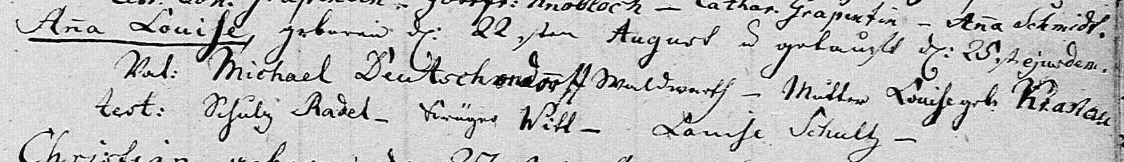 Knobloch – Cathar. Grapentin – Aña Schmidt.
Aña Louise, geboren d: 22sten August u getauft d: 25st ejusdem.
Vat: Michael Deutschendorff Waldwarth – Mutter Louise geb Krakau
test: Schulz Radel – Krüger Witt – Louise Schultz –
Christian